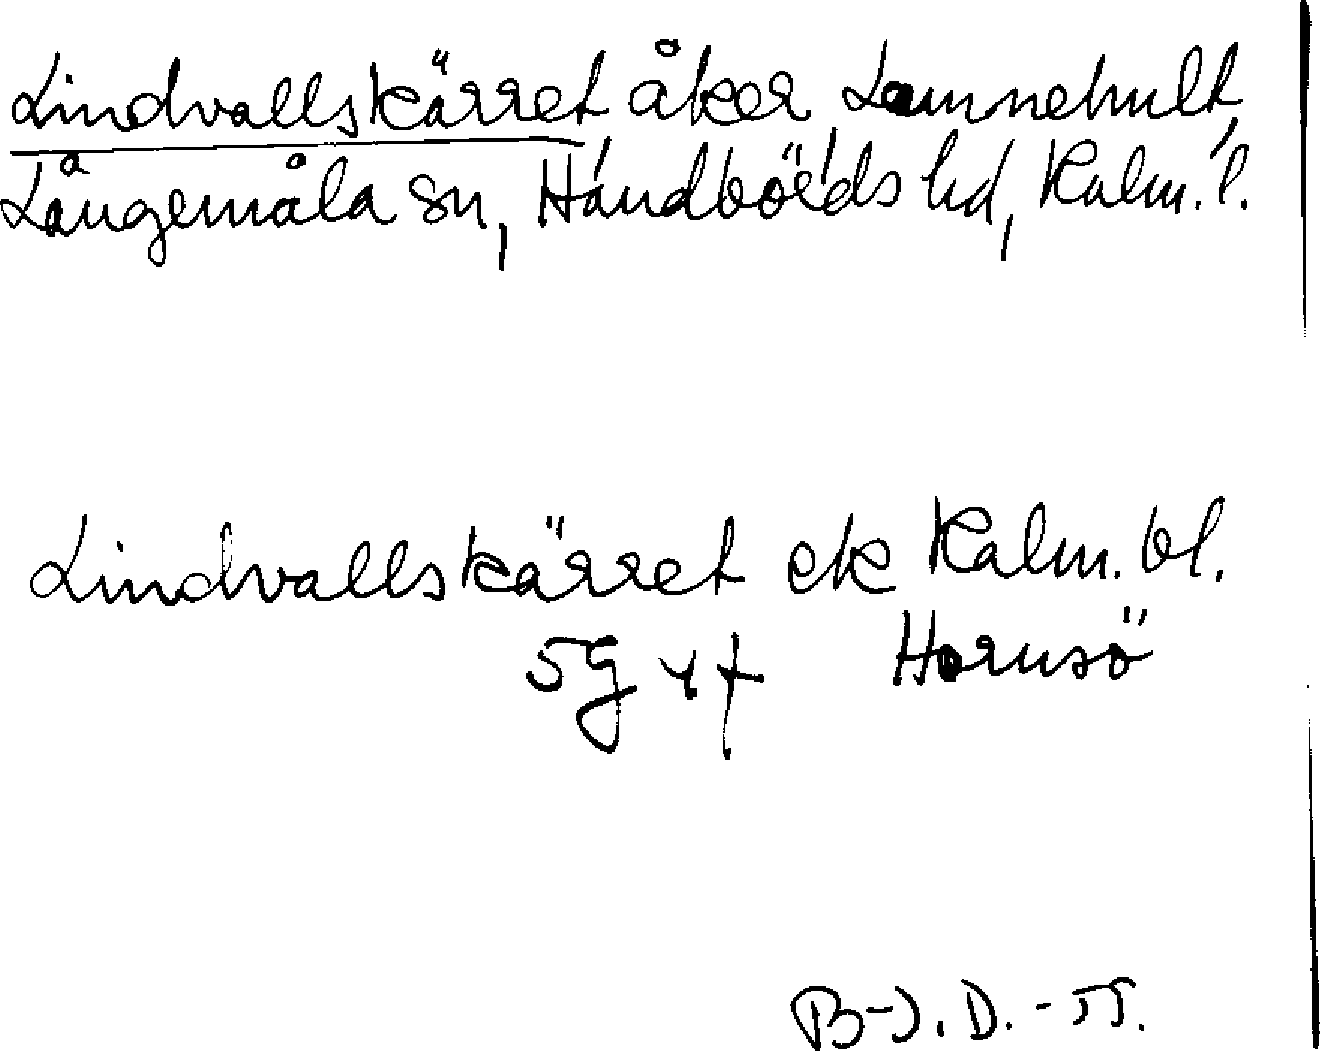 Lindvallskärret åker Lannehult,
Långemåla sn, Handbörds hd, Kalm. l.
Lindvallskärret ek Kalm. bl.
5g y f Hornsö
B-J. D. - 55.